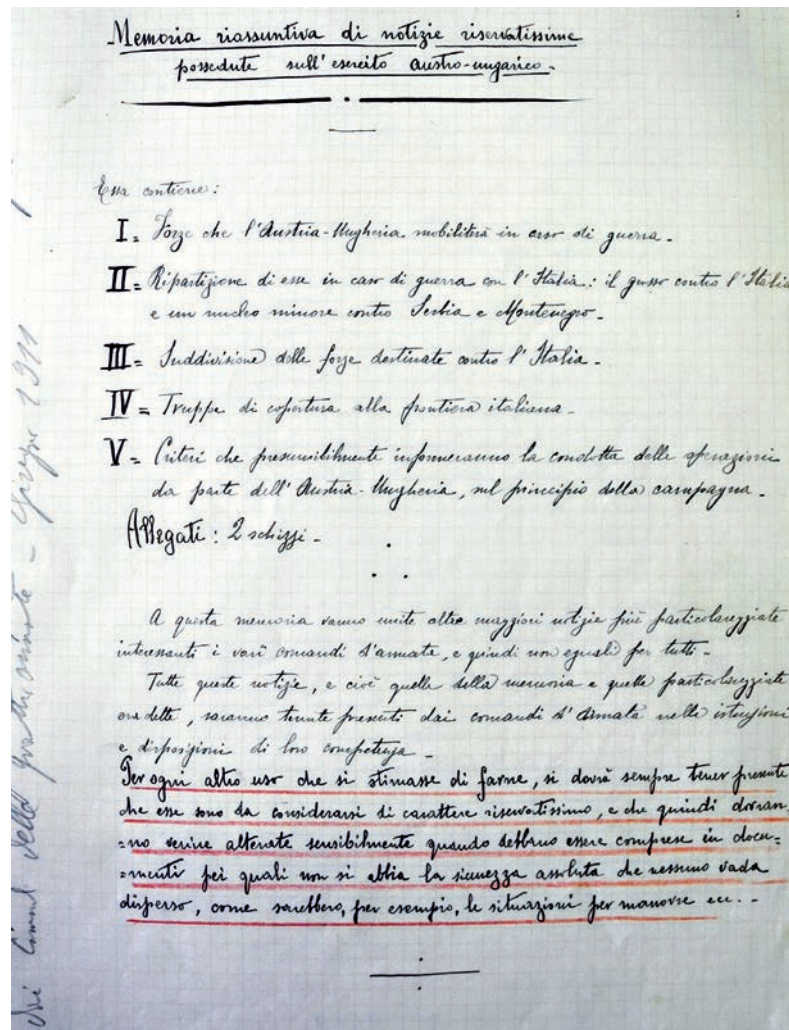 Memoria riassuntiva di notizie riservatissime
possedute sull'esercito austro-ungarico -
Essa contiene:
I = Forze che l'Austria-Ungheria mobiliterà in caso di guerra -
II = Ripartizione di esse in caso di guerra con l'Italia: il grosso contro l'Italia
e un nucleo minore contro Serbia e Montenegro -
III = Suddivisione delle forze destinate contro l'Italia -
IV = Truppe di copertura alla frontiera italiana -
V = Criteri che presumibilmente informeranno la condotta delle operazioni
da parte dell'Austria-Ungheria, sul principio della campagna -
Allegati: 2 schizzi -
A questa memoria vanno unite altre maggiori notizie più particolareggiate
interessanti i varî comandi d'armata, e quindi non eguali per tutti -
Tutte queste notizie, e cioè quelle della memoria e quelle particolareggiate
ora dette, saranno tenute presenti dai comandi d'Armata nelle istruzioni
e disposizioni di loro competenza -
Per ogni altro uso che si stimasse di farne, si dovrà sempre tener presente
che esse sono da considerarsi di carattere riservatissimo, e che quindi dovran=
=no venire alterate sensibilmente quando debbano essere comprese in docu=
=menti pei quali non si abbia la sicurezza assoluta che nessuno vada
disperso, come sarebbero, per esempio, le situazioni per manovre ecc. -
- Giugno 1911